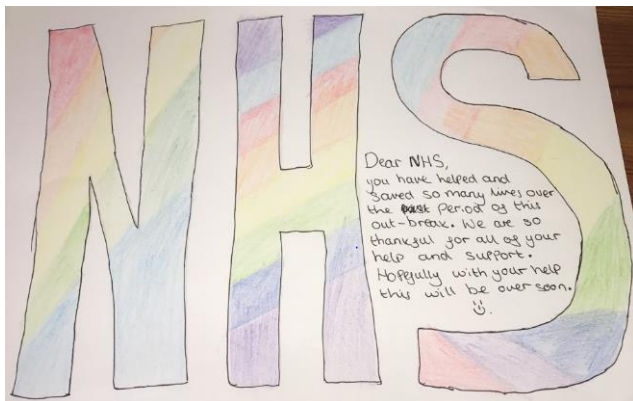 NHS
Dear NHS,
you have helped and
saved so many lives over
the past period of this
out-break. We are so
thankful for all of your
help and support.
Hopefully with your help
this will be over soon.